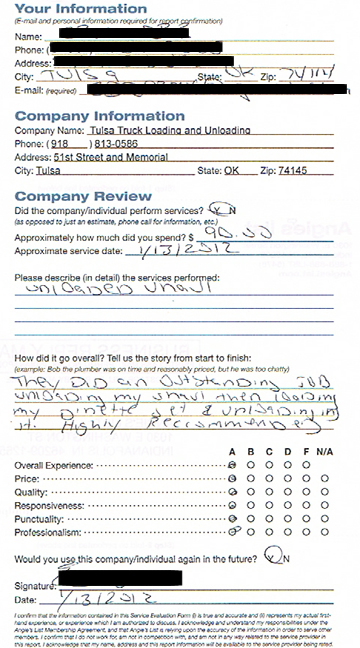 Your Information
(E-mail and personal information required for report confirmation)
Name:
Phone: (
Address:
City: TULSA State: OK Zip: 74114
E-mail: (required)
Company Information
Company Name: Tulsa Truck Loading and Unloading
Phone: ( 918 ) 813-0586
Address: 51st Street and Memorial
City: Tulsa State: OK Zip: 74145
Company Review
Did the company/individual perform services? Y N
(as opposed to just an estimate, phone call for information, etc.)
Approximately how much did you spend? $ 90.00
Approximate service date: 1/13/2012
Please describe (in detail) the services performed:
UNLOADED UHAUL
How did it go overall? Tell us the story from start to finish:
(example: Bob the plumber was on time and reasonably priced, but he was too chatty)
They DID an OUTSTANDING JOB
UNLOADING my UHAUL then LOADING
my DINETTE SET & UNLOADING
it. Highly Recommended
A B C D F N/A
Overall Experience:
Price:
Quality:
Responsiveness:
Punctuality:
Professionalism:
Would you use this company/individual again in the future? Y N
Signature:
Date: 1/13/2012
I confirm that the information contained in this Service Evaluation Form (i) is true and accurate and (ii) represents my actual first-
hand experience, or experience which I am authorized to discuss. I acknowledge and understand my responsibilities under the
Angie's List Membership Agreement, and that Angie's List is relying upon the accuracy of the information in order to serve other
members. I confirm that I do not work for, am not in competition with, and am not in any way related to the service provider in
this report. I acknowledge that my name, address and this report information will be available to the service provider being rated.